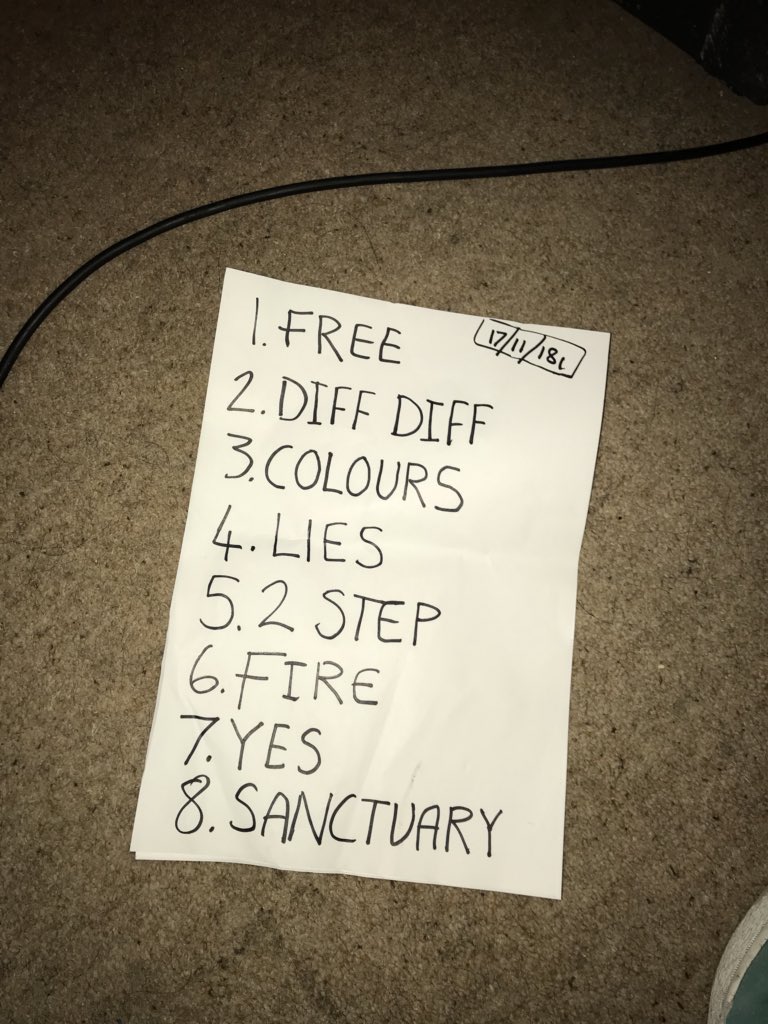 1. FREE
17/11/18
2. DIFF DIFF
3. COLOURS
4. LIES
5. 2 STEP
6. FIRE
7. YES
8. SANCTUARY